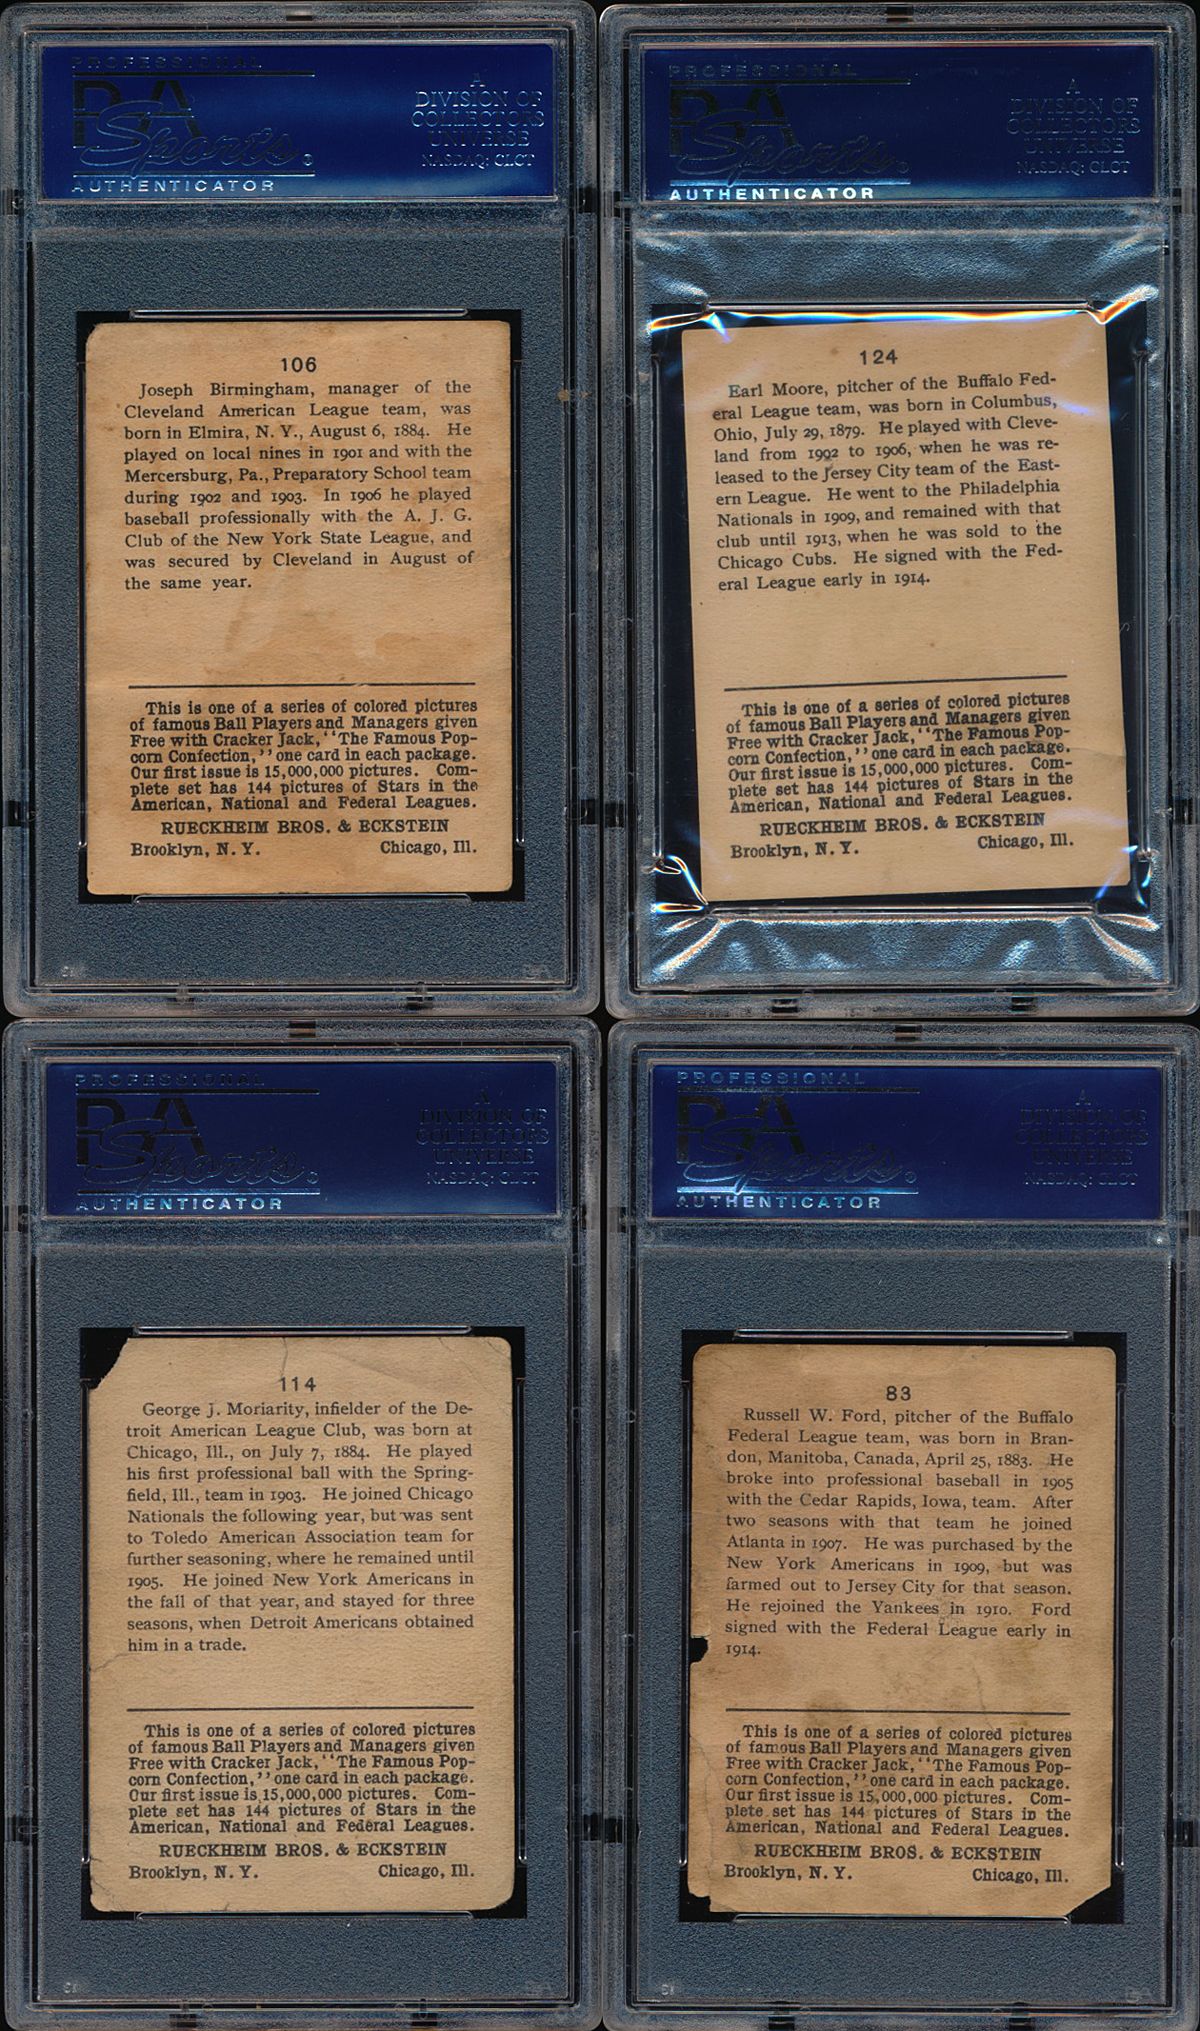 PROFESSIONAL
PSA
Sports
AUTHENTICATOR
A
DIVISION OF
COLLECTORS
UNIVERSE
NASDAQ: CLCT
106
Joseph Birmingham, manager of the
Cleveland American League team, was
born in Elmira, N. Y., August 6, 1884. He
played on local nines in 1901 and with the
Mercersburg, Pa., Preparatory School team
during 1902 and 1903. In 1906 he played
baseball professionally with the A. J. G.
Club of the New York State League, and
was secured by Cleveland in August of
the same year.
This is one of a series of colored pictures
of famous Ball Players and Managers given
Free with Cracker Jack, "The Famous Pop-
corn Confection," one card in each package.
Our first issue is 15,000,000 pictures. Com-
plete set has 144 pictures of Stars in the
American, National and Federal Leagues.
RUECKHEIM BROS. & ECKSTEIN
Brooklyn, N. Y. Chicago, Ill.
PROFESSIONAL
PSA
Sports
AUTHENTICATOR
A
DIVISION OF
COLLECTORS
UNIVERSE
NASDAQ: CLCT
124
Earl Moore, pitcher of the Buffalo Fed-
eral League team, was born in Columbus,
Ohio, July 29, 1879. He played with Cleve-
land from 1902 to 1906, when he was re-
leased to the Jersey City team of the East-
ern League. He went to the Philadelphia
Nationals in 1909, and remained with that
club until 1913, when he was sold to the
Chicago Cubs. He signed with the Fed-
eral League early in 1914.
This is one of a series of colored pictures
of famous Ball Players and Managers given
Free with Cracker Jack, "The Famous Pop-
corn Confection," one card in each package.
Our first issue is 15,000,000 pictures. Com-
plete set has 144 pictures of Stars in the
American, National and Federal Leagues.
RUECKHEIM BROS. & ECKSTEIN
Brooklyn, N. Y. Chicago, Ill.
PROFESSIONAL
PSA
Sports
AUTHENTICATOR
A
DIVISION OF
COLLECTORS
UNIVERSE
NASDAQ: CLCT
114
George J. Moriarity, infielder of the De-
troit American League Club, was born at
Chicago, Ill., on July 7, 1884. He played
his first professional ball with the Spring-
field, Ill., team in 1903. He joined Chicago
Nationals the following year, but was sent
to Toledo American Association team for
further seasoning, where he remained until
1905. He joined New York Americans in
the fall of that year, and stayed for three
seasons, when Detroit Americans obtained
him in a trade.
This is one of a series of colored pictures
of famous Ball Players and Managers given
Free with Cracker Jack, "The Famous Pop-
corn Confection," one card in each package.
Our first issue is 15,000,000 pictures. Com-
plete set has 144 pictures of Stars in the
American, National and Federal Leagues.
RUECKHEIM BROS. & ECKSTEIN
Brooklyn, N. Y. Chicago, Ill.
PROFESSIONAL
PSA
Sports
AUTHENTICATOR
A
DIVISION OF
COLLECTORS
UNIVERSE
NASDAQ: CLCT
83
Russell W. Ford, pitcher of the Buffalo
Federal League team, was born in Bran-
don, Manitoba, Canada, April 25, 1883. He
broke into professional baseball in 1905
with the Cedar Rapids, Iowa, team. After
two seasons with that team he joined
Atlanta in 1907. He was purchased by the
New York Americans in 1909, but was
farmed out to Jersey City for that season.
He rejoined the Yankees in 1910. Ford
signed with the Federal League early in
1914.
This is one of a series of colored pictures
of famous Ball Players and Managers given
Free with Cracker Jack, "The Famous Pop-
corn Confection," one card in each package.
Our first issue is 15,000,000 pictures. Com-
plete set has 144 pictures of Stars in the
American, National and Federal Leagues.
RUECKHEIM BROS. & ECKSTEIN
Brooklyn, N. Y. Chicago, Ill.